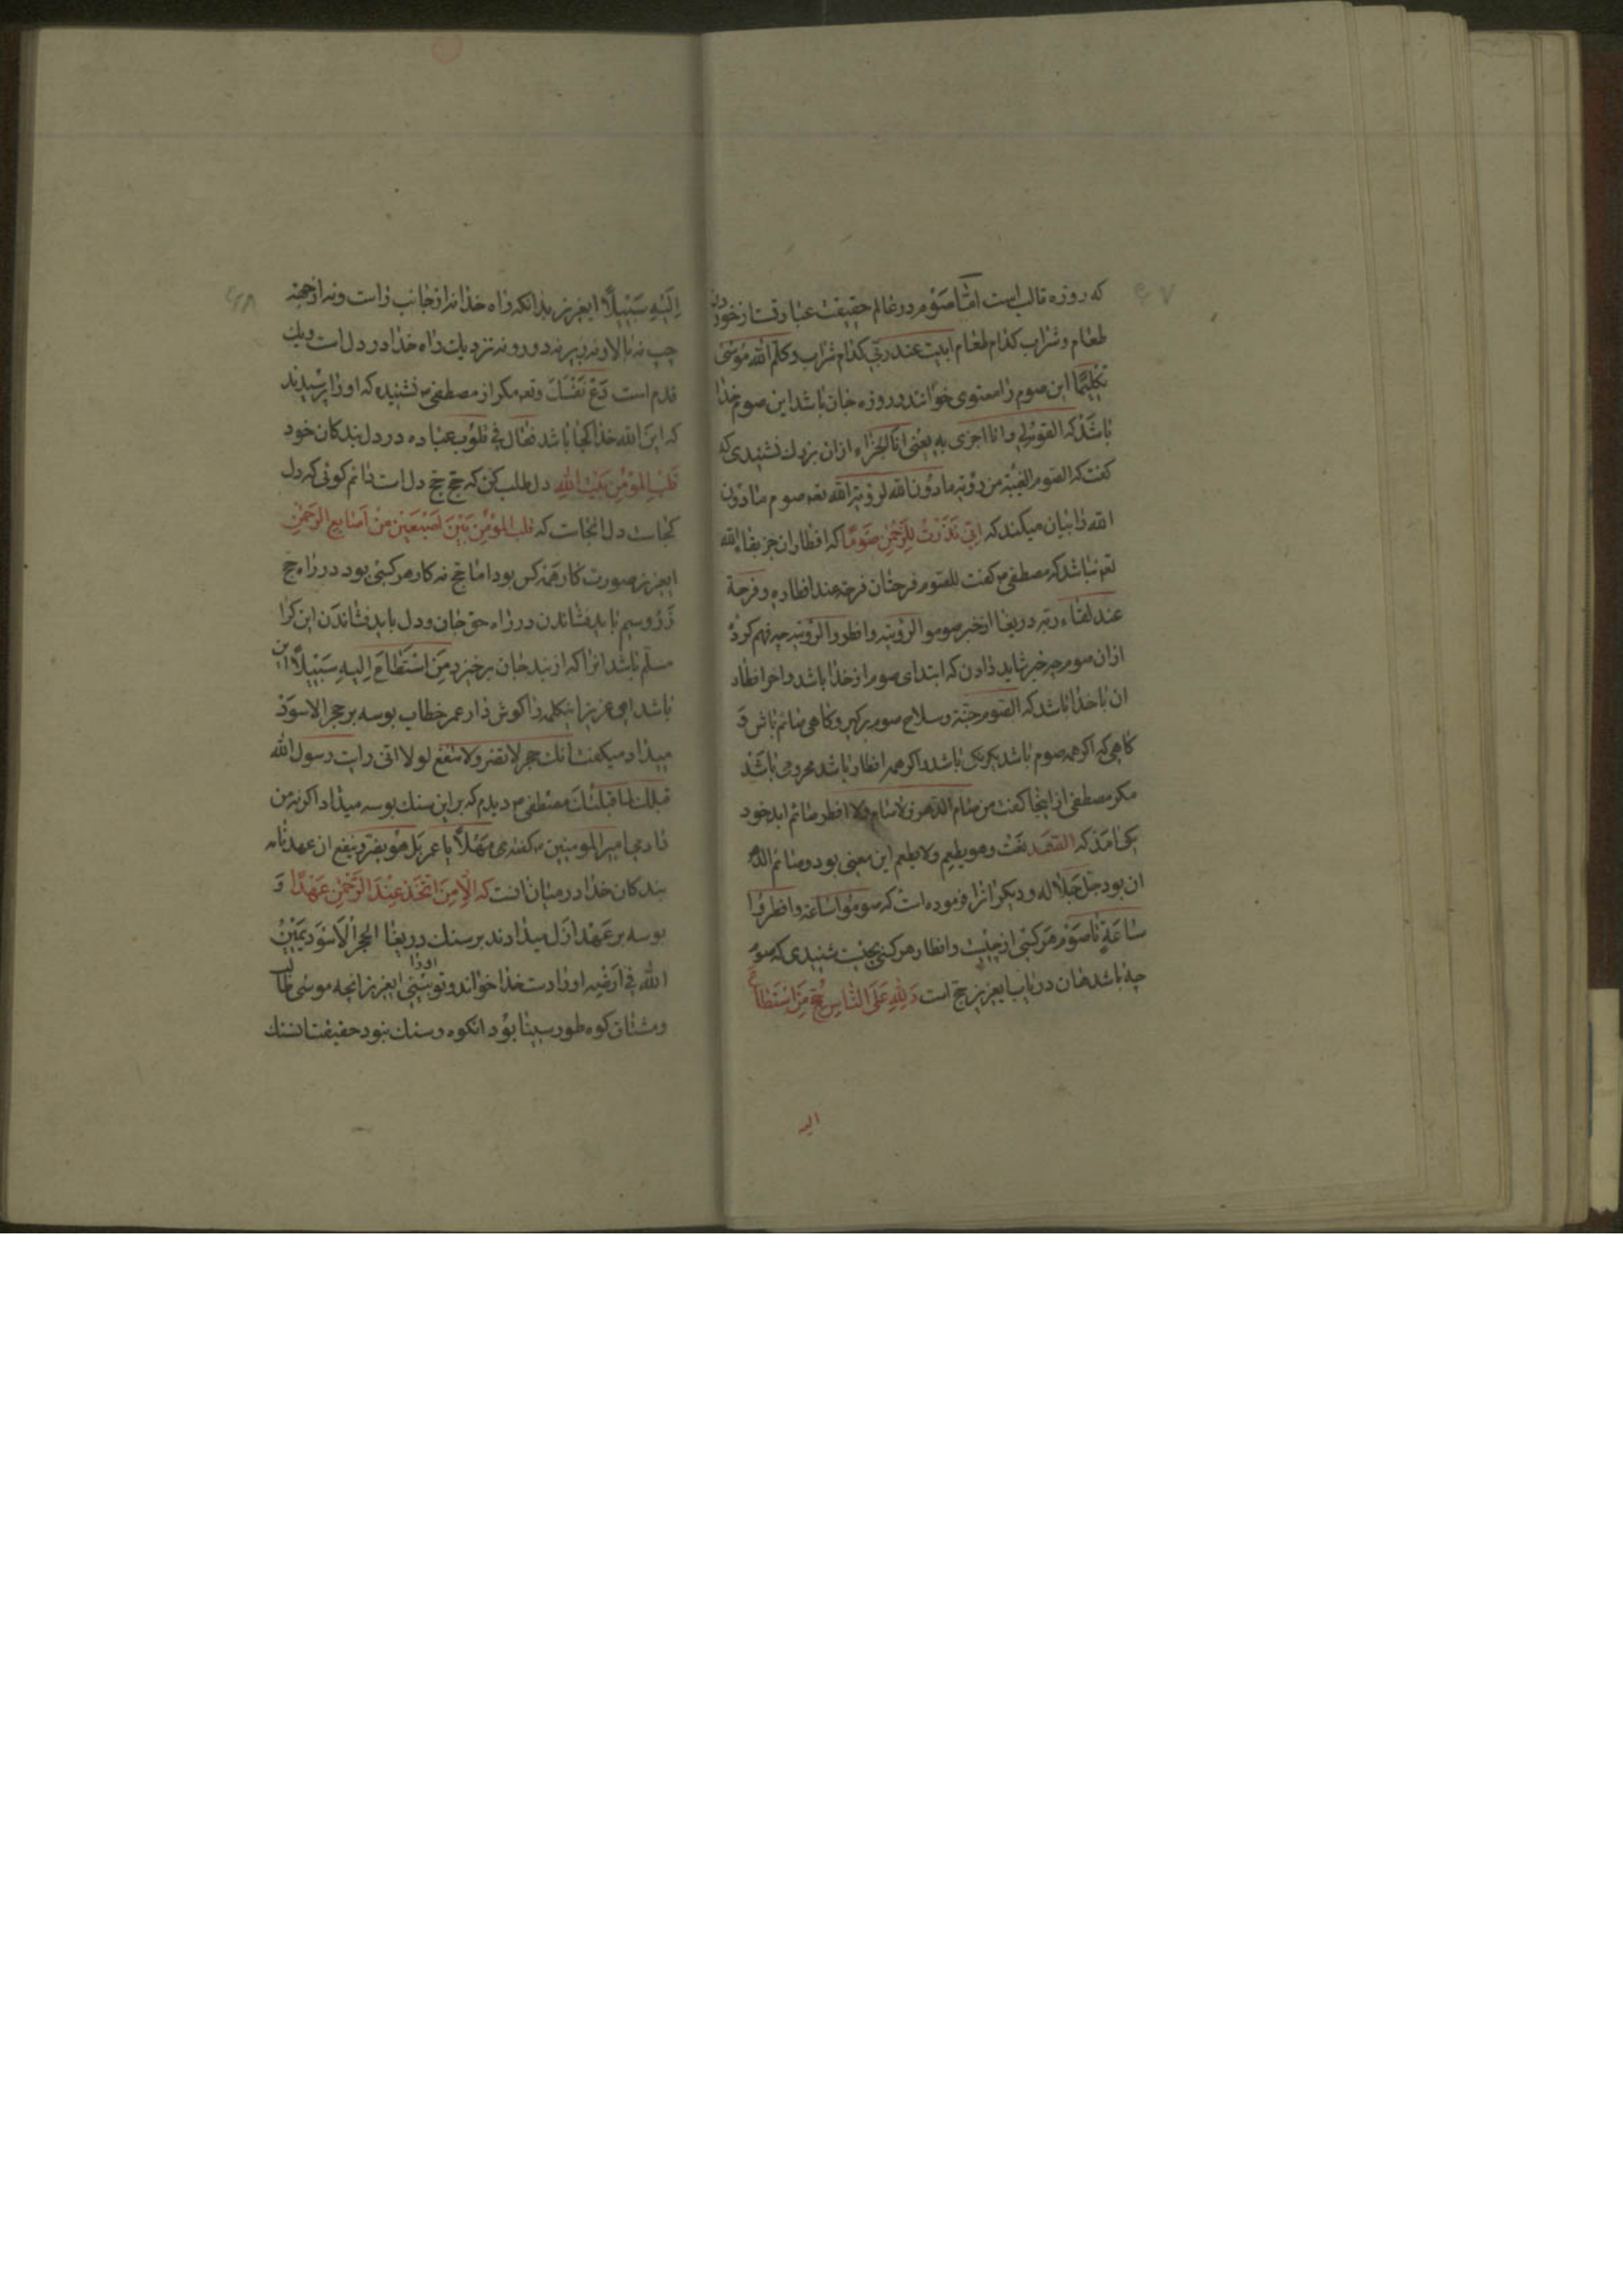 که روزه قالب است امّا صَوْم در عالم حقیقت عبارتست از خوردن
طعام و شراب کدام طعام ابیت عند ربّی کدام شراب و کلّم الله مُوسٰی
تکلیمًا این صوم را معنوی خوانند و روزه جان باشد این صوم خدا
باشَد که الصّوم لی و انا اجزی به یعنی انا الجزاء ازان بزرک نشنیدی که
کفت که الصوم الغیبة من رؤیة ما دون الله لرؤیة الله تعه صوم ما دون
الله را بیان میکند که اِنّی نَذَرْتُ لِلرَّحْمٰنِ صَوْمًا که افطار ان جز بقاء الله
تعه نباشد که مصطفی ص کفت للصّوم فرحتان فرحة عند افطاره و فرحة
عند لقاء ربّه دریغا از خبر صوموا لرؤیته و افطروا لرؤیته چه فهم کردهٔ
ازان صوم چه خبر شاید دادن که ابتدای صوم از خدا باشد و اخر افطار
ان با خدا باشد که الصّوم جنّة و سلاح صوم برکیر و کاهی صائم باش وَ
کاهی که اکر همه صوم باشد یکرنکی باشد و اکر همه افطار باشد محرومی باشَد
مکر مصطفی از اینجا کفت من صام الدّهر فلا صام ولا افطر صائم ابد خود
یکی امَد که الصَّمَد نعت وهو یطعِم ولا یطعم این معنی بود و صائم الدّهر
ان بود جلّ جَلاله و دیکر انرا فرموده است که صوموا ساعَة و افطروا
ساعَةً تا صَوْم هَر کسی از چیست و افطار هر کسی بچیست شنیدی که صوم
چه باشد هان در باب ایعزیز حج است وَ لِلّٰهِ عَلَی النّاسِ حِجُّ مَنِ اسْتَطاعَ
الیه
اِلَیْهِ سَبیلاً ایعزیز بدانکه راه خدا نه از جانب راست و نه از جهة
چپ نه بالا و نه زیر نه دور و نه نزدیک راه خدا در دل است و یک
قدم است دَعْ نَفْسَکَ و تعه مکر از مصطفی ص نشنیده که او را پرسیدند
که اینَ الله خدا کجا باشد فقال فی قلُوب عباده در دل بندکان خود
قَلْب المؤمن بَیْت الله دل طلب کن که حج حج دل است دانم کوئی که دل
کجاست دل انجاست که قلب المؤمن بَیْنَ اِصْبَعَیْن مِنْ اَصابع الرّحمٰن
ایعزیز صورت کار همه کس بود امّا حج نه کار هر کسی بود در راه حج
زَر و سیم باید فشاندن در راه حق جان و دل باید فشاندَن این کرا
مسلّم باشد انرا که از بند جان برخیزد مَنِ اسْتَطاعَ اِلیهِ سَبیلاً این
باشد ای عزیز اینکلمه را کوش دار عمر خطاب بوسه بر حجر الاسوَد
میداد میکفت انّک حجر لا تضر ولا تنفع لولا انّی رایت رسول الله
قبلک لما قبلتک مصطفی ص دیدم که بر این سنک بوسه میداد اکر نه من
ندادمی امیر المومنین کفت مَهْلاً یا عمر بل هُو یضر و ینفع ان عهدنامه
بندکان خدا در میان انست که اِلّا مَنِ اتَّخَذَ عِنْدَ الرَّحْمٰنِ عَهْدًا وَ
بوسه بر عَهْد ازل میدادند بر سنک دریغا الحجر الاَسْوَد یَمینُ
الله فی اَرضِه او را دست خدا خواند و تو او را بینی ایعزیز انچه موسی طالب
و مشتاق کوه طور سینا بوُد انکوه و سنک نبود حقیقت انسنک